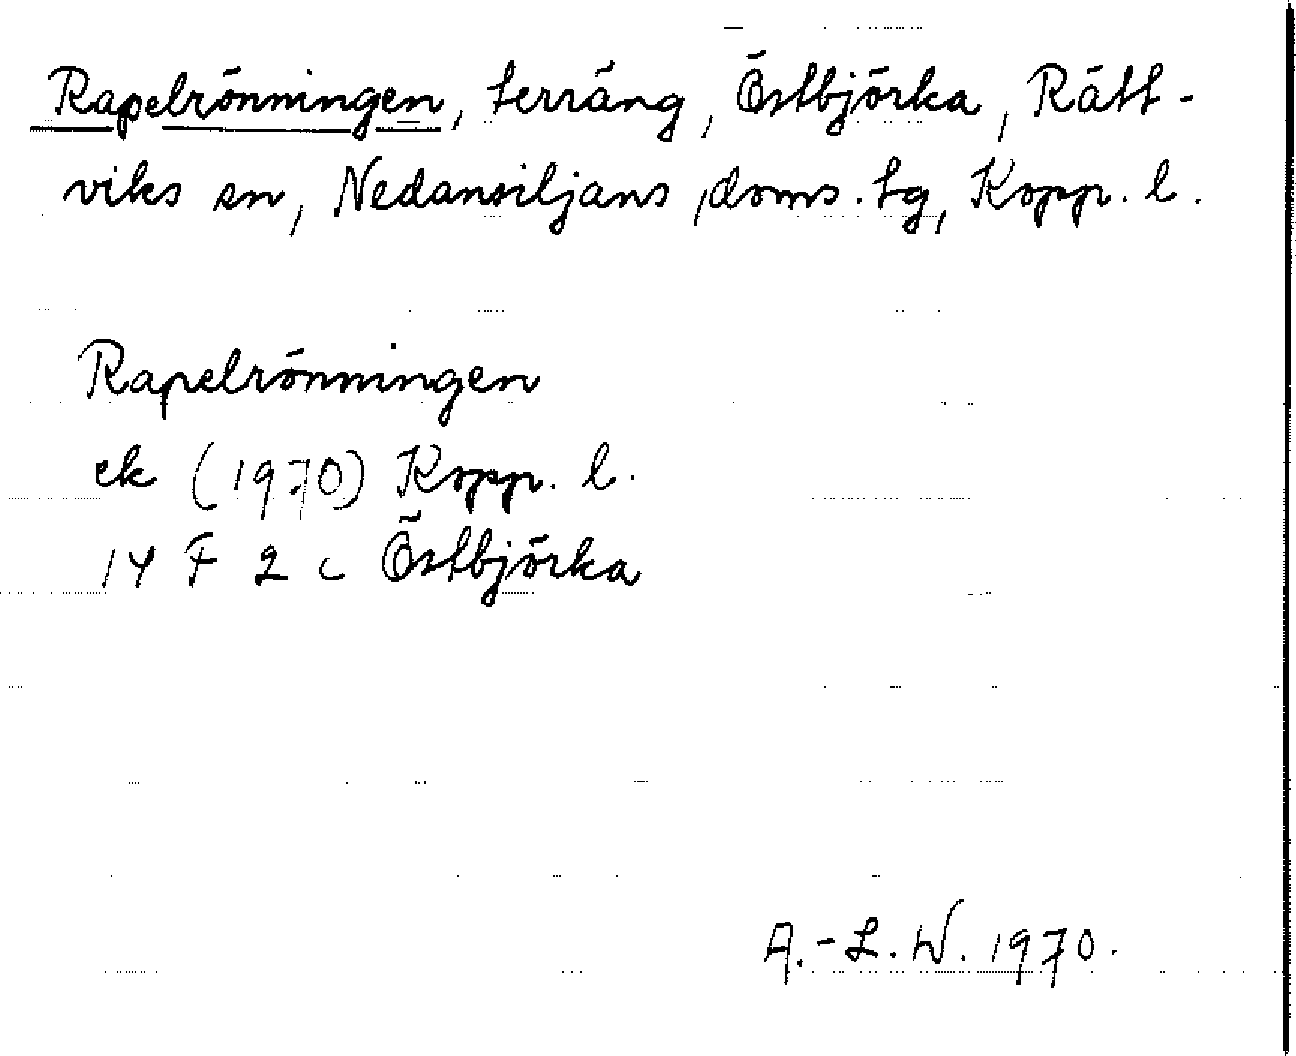 Rapelrönningen, terräng, Östbjörka, Rätt-
viks sn, Nedansiljans doms. tg, Kopp. l.
Rapelrönningen
ek (1970) Kopp. l.
14 F 2 c Östbjörka
A.-L. W. 1970.